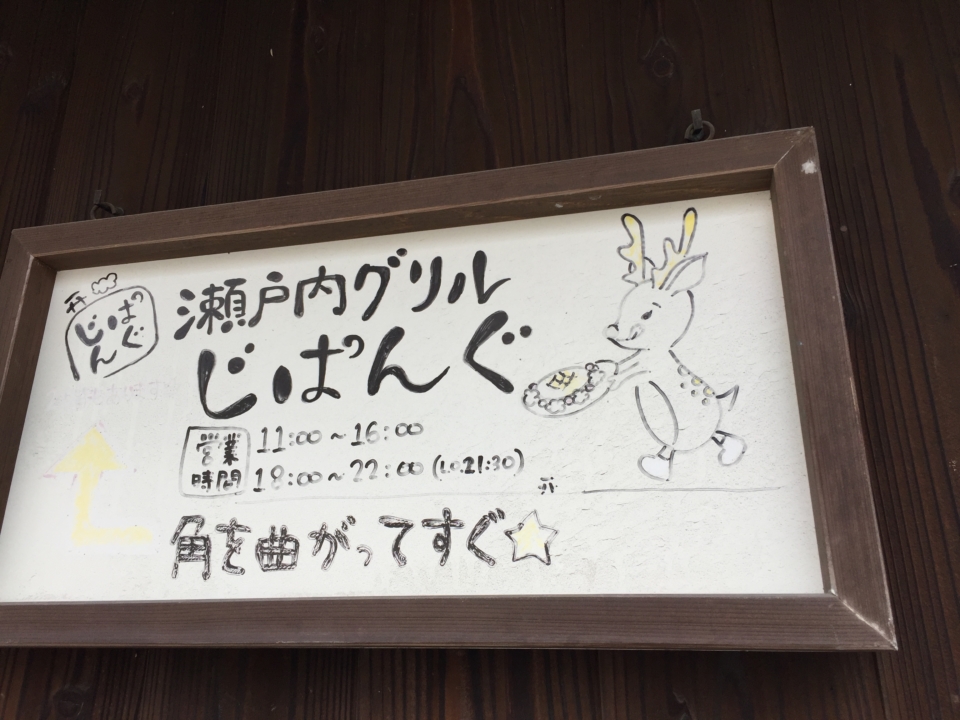 じぱんぐ
瀬戸内グリル
じぱんぐ
営業時間
11:00～16:00
18:00～22:00 (L.O.21:30)
角を曲がってすぐ☆